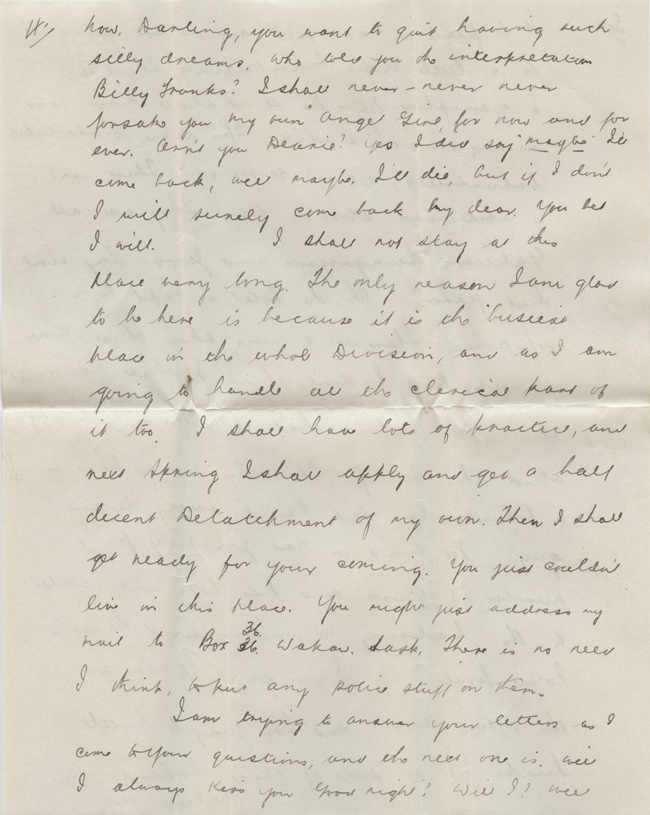 4/ now. Darling, you want to quit having such
silly dreams. Who told you the interpretation
Billy Franks? I shall never – never never
forsake you my own Angel Girl, for now and for
ever. Arn't you Dearie? Yes I did say "maybe" I'll
come back, well maybe, I'll die, but if I don't
I will surely come back my dear. You bet
I will. I shall not stay at this
place very long. The only reason I am glad
to be here is because it is the busiest
place in the whole Division, and as I am
going to handle all the clerical part of
it too. I shall have lots of practice, and
next Spring I shall apply and get a half
decent Detatchment of my own. Then I shall
get ready for your coming. You just couldn't
live in this place. You might just address my
mail to Box 36. Wakaw. Sask. There is no need
I think, to put any police stuff on them.
I am trying to answer your letters as I
come to your questions, and the next one is. will
I always kiss you Good night? Will I? well